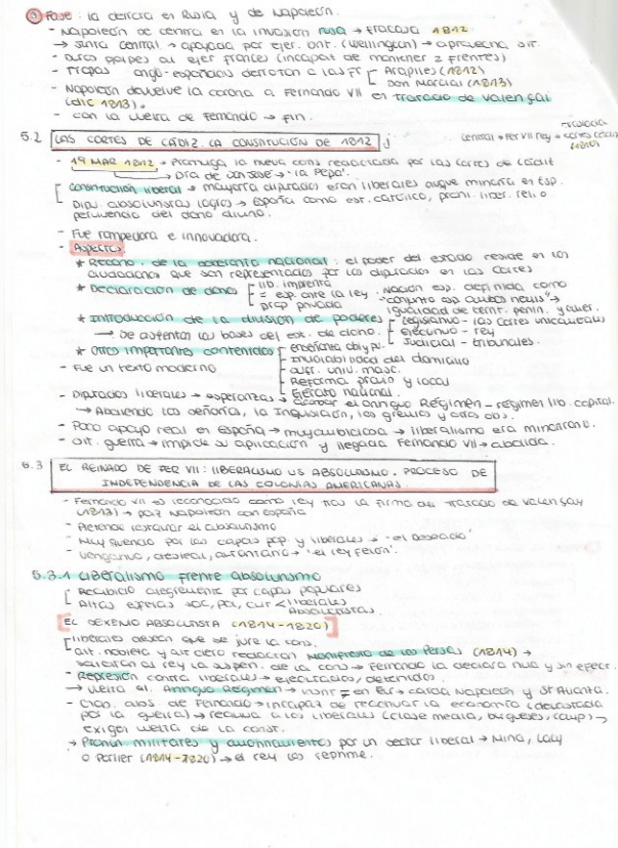 ③ Fase: la derrota en Rusia y de Napoleón.
- Napoleón se centra en la invasión rusa → fracasa 1812
→ Junta Central → apoyada por ejer. brit. (Wellington) → aprovecha sit.
- Duros golpes al ejer francés (incapaz de mantener 2 frentes)
- Tropas anglo-españolas derrotan a las fr [ Arapiles (1812)
San Marcial (1813)
- Napoleón devuelve la corona a Fernando VII en Tratado de Valençai
(dic 1813).
- con la vuelta de Fernando → fin.
5.2 LAS CORTES DE CÁDIZ. LA CONSTITUCIÓN DE 1812
central → Fer VII rey → cortes Cádiz
(1810)
- 19 MAR 1812 → Promulga la nueva cons redactada por las cortes de Cádiz
→ Día de San José → 'la Pepa'.
[ Constitución liberal → mayoría diputados eran liberales auque minoría en Esp.
Dipu. absolutistas logros → España como est. católico, prohi. liber. reli. o
pervivencia del dano divino.
- Fue rompedora e innovadora.
- Aspectos
* Recono. de la soberanía nacional: el poder del estado reside en los
ciudadanos que son representados por los diputados en las cortes
* Declaración de dchos [ lib. imprenta
= esp. ante la ley
prop privada
. Nación esp. definida como
"conjunto esp. ambos hemis" →
igualdad de territ. penin. y amer.
* Introducción de la división de poderes [ Legislativo - las cortes unicamerales
Ejecutivo - rey
Judicial - tribunales.
→ Se asientan las bases del est. de dcho.
* Otros importantes contenidos [ Enseñanza obl y pu.
Inviolabilidad del domicilio
sufr. univ. masc.
Reforma provin y local
Ejército nacional.
- Fue un texto moderno
- Diputados liberales → esperanzas → acabar el antiguo Régimen - régimen lib. capital.
→ Aboliendo los señoríos, la Inquisición, los gremios y otras obs.
- Poco apoyo real en España → muy ambiciosa → liberalismo era minoritario.
- Sit. guerra → impide su aplicación y llegada Fernando VII → abolida.
5.3 EL REINADO DE FER VII: LIBERALISMO VS ABSOLUTISMO. PROCESO DE
INDEPENDENCIA DE LAS COLONIAS AMERICANAS.
- Fernando VII es reconocido como rey tras la firma del Tratado de Valençay
(1813) → paz Napoleón con España
- Pretende restaurar el absolutismo
- Muy querido por las capas pop. y liberales → 'el Deseado'
- Vengativo, desleal, autoritario → 'el rey Felón'.
5.3.1 Liberalismo frente absolutismo
[ Recibido alegremente por capas populares
Altas esferas soc, pol, cul < liberales
Absolutistas.
EL SEXENIO ABSOLUTISTA (1814-1820)
[ liberales desean que se jure la cons.
alt. nobleza y alt clero redactan Manifiesto de los Persas (1814) →
solicitan al rey la suspen. de la cons → Fernando la declara nula y sin efect.
- Represión contra liberales → ejecutados, detenidos.
→ Vuelta al Antiguo Régimen → mont = en Eur → caída Napoleón y St Alianta.
por la guerra) → recurre a los liberales (clase media, burgueses, camp) →
exigen vuelta de la const.
→ Pronun. militares y amotinamientos por un sector liberal → Mina, Lacy
o Porlier (1814-1820) → el rey los reprime.